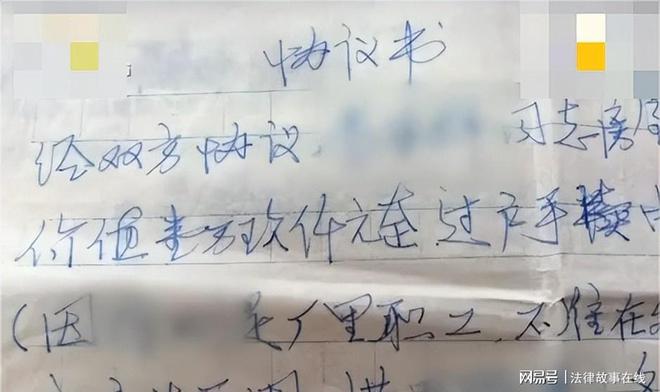 协议书
经双方协议 同志房屋
价值壹万玖仟元整 过户手续由
（因 是厂里职工，不住在
网易号 | 法律故事在线